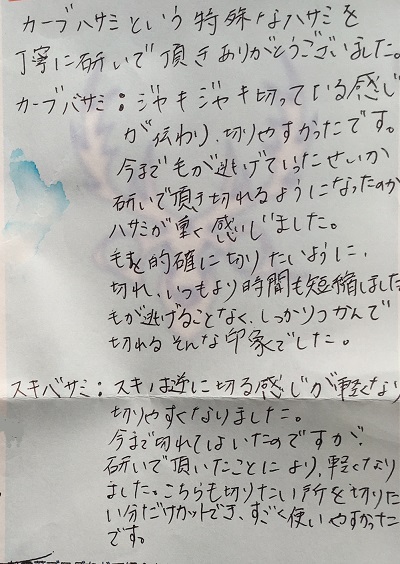 カーブハサミという特殊なハサミを
丁寧に研いで頂きありがとうございました。
カーブバサミ：ジャキジャキ切っている感じ
が伝わり、切りやすかったです。
今まで毛が逃げていったせいか
研いで頂き切れるようになったのか
ハサミが重く感いじました。
毛を的確に切りたいように、
切れ、いつもより時間も短縮しました
毛が逃げることなく、しっかりつかんで
切れるそんな印象でした。
スキバサミ：スキは逆に切る感じが軽くなり
切りやすくなりました。
今まで切れてはいたのですが、
研いで頂いたことにより、軽くなり
ました。こちらも切りたい所を切りた
い分だけカットでき、すごく使いやすかった
です。